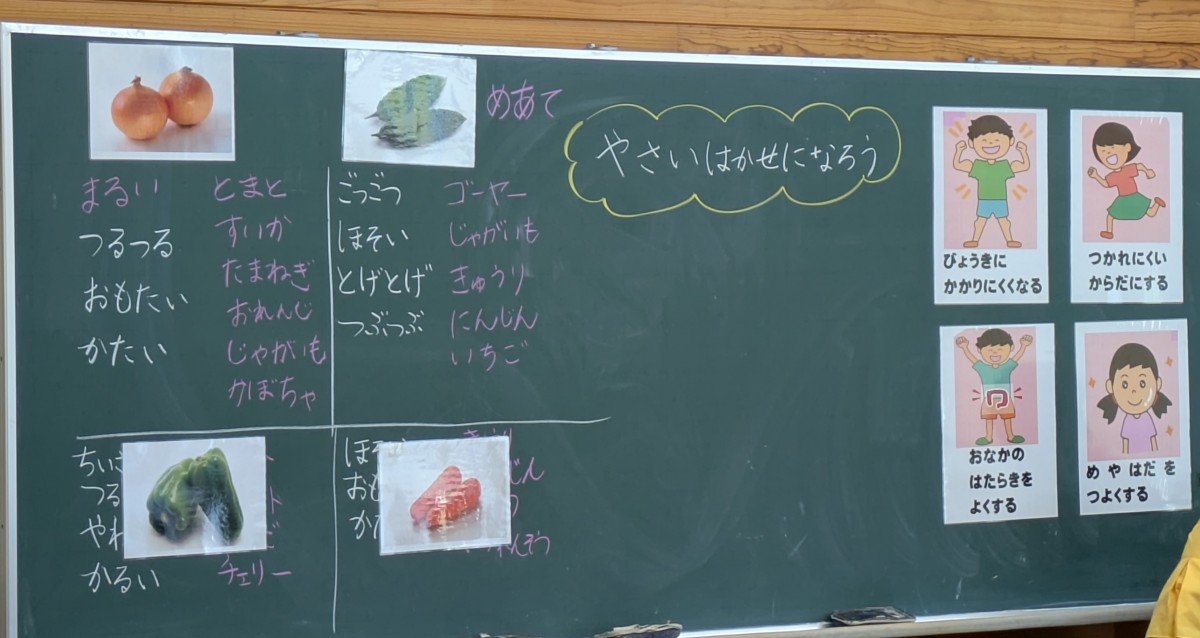 めあて
やさいはかせになろう
まるい
つるつる
おもたい
かたい
とまと
すいか
たまねぎ
おれんじ
じゃがいも
かぼちゃ
ごつごつ
ほそい
とげとげ
つぶつぶ
ゴーヤー
じゃがいも
きゅうり
にんじん
いちご
かるい
チェリー
びょうきに
かかりにくくなる
つかれにくい
からだにする
おなかの
はたらきを
よくする
め や はだ を
つよくする